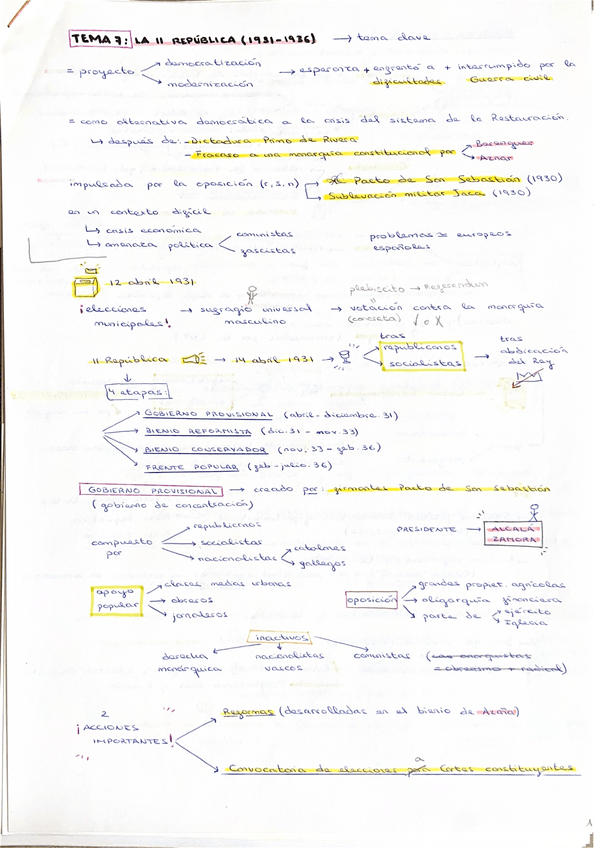 TEMA 7: LA II REPÚBLICA (1931-1936) → tema clave
= proyecto democratización modernización → esperanza + enfrentó a dificultades + interrumpido por la Guerra civil
= como alternativa democrática a la crisis del sistema de la Restauración.
↳ después de: - Dictadura Primo de Rivera
- Fracaso a una monarquía constitucional por Berenguer Aznar
impulsada por la oposición (r, s, n) Pacto de San Sebastián (1930)
Sublevación militar Jaca (1930)
en un contexto difícil
↳ crisis económica
↳ amenaza política comunistas fascistas
problemas ≃ europeos
españoles
12 abril 1931
plebiscito → Referendum
¡elecciones municipales! → sufragio universal masculino → votación contra la monarquía
(concreta) √ o X
II República → 14 abril 1931 → tras republicanos socialistas → tras abdicación del Rey
4 etapas:
GOBIERNO PROVISIONAL (abril-diciembre.31)
BIENIO REFORMISTA (dic.31 - nov.33)
BIENIO CONSERVADOR (nov.33 - feb.36)
FRENTE POPULAR (feb-julio.36)
GOBIERNO PROVISIONAL → creado por: firmantes Pacto de San Sebastián
(gobierno de concentración)
compuesto por
republicanos
socialistas
nacionalistas catalanes gallegos
PRESIDENTE → ALCALÁ ZAMORA
apoyo popular
clases medias urbanas
obreros
jornaleros
oposición
grandes propiet. agrícolas
oligarquía financiera
parte de ejército Iglesia
inactivos
derecha monárquica
nacionalistas vascos
comunistas (Los anarquistas = obrerismo + radical)
2
¡ACCIONES IMPORTANTES!
Reformas (desarrolladas en el bienio de Azaña)
Convocatoria de elecciones para a Cortes constituyentes
1